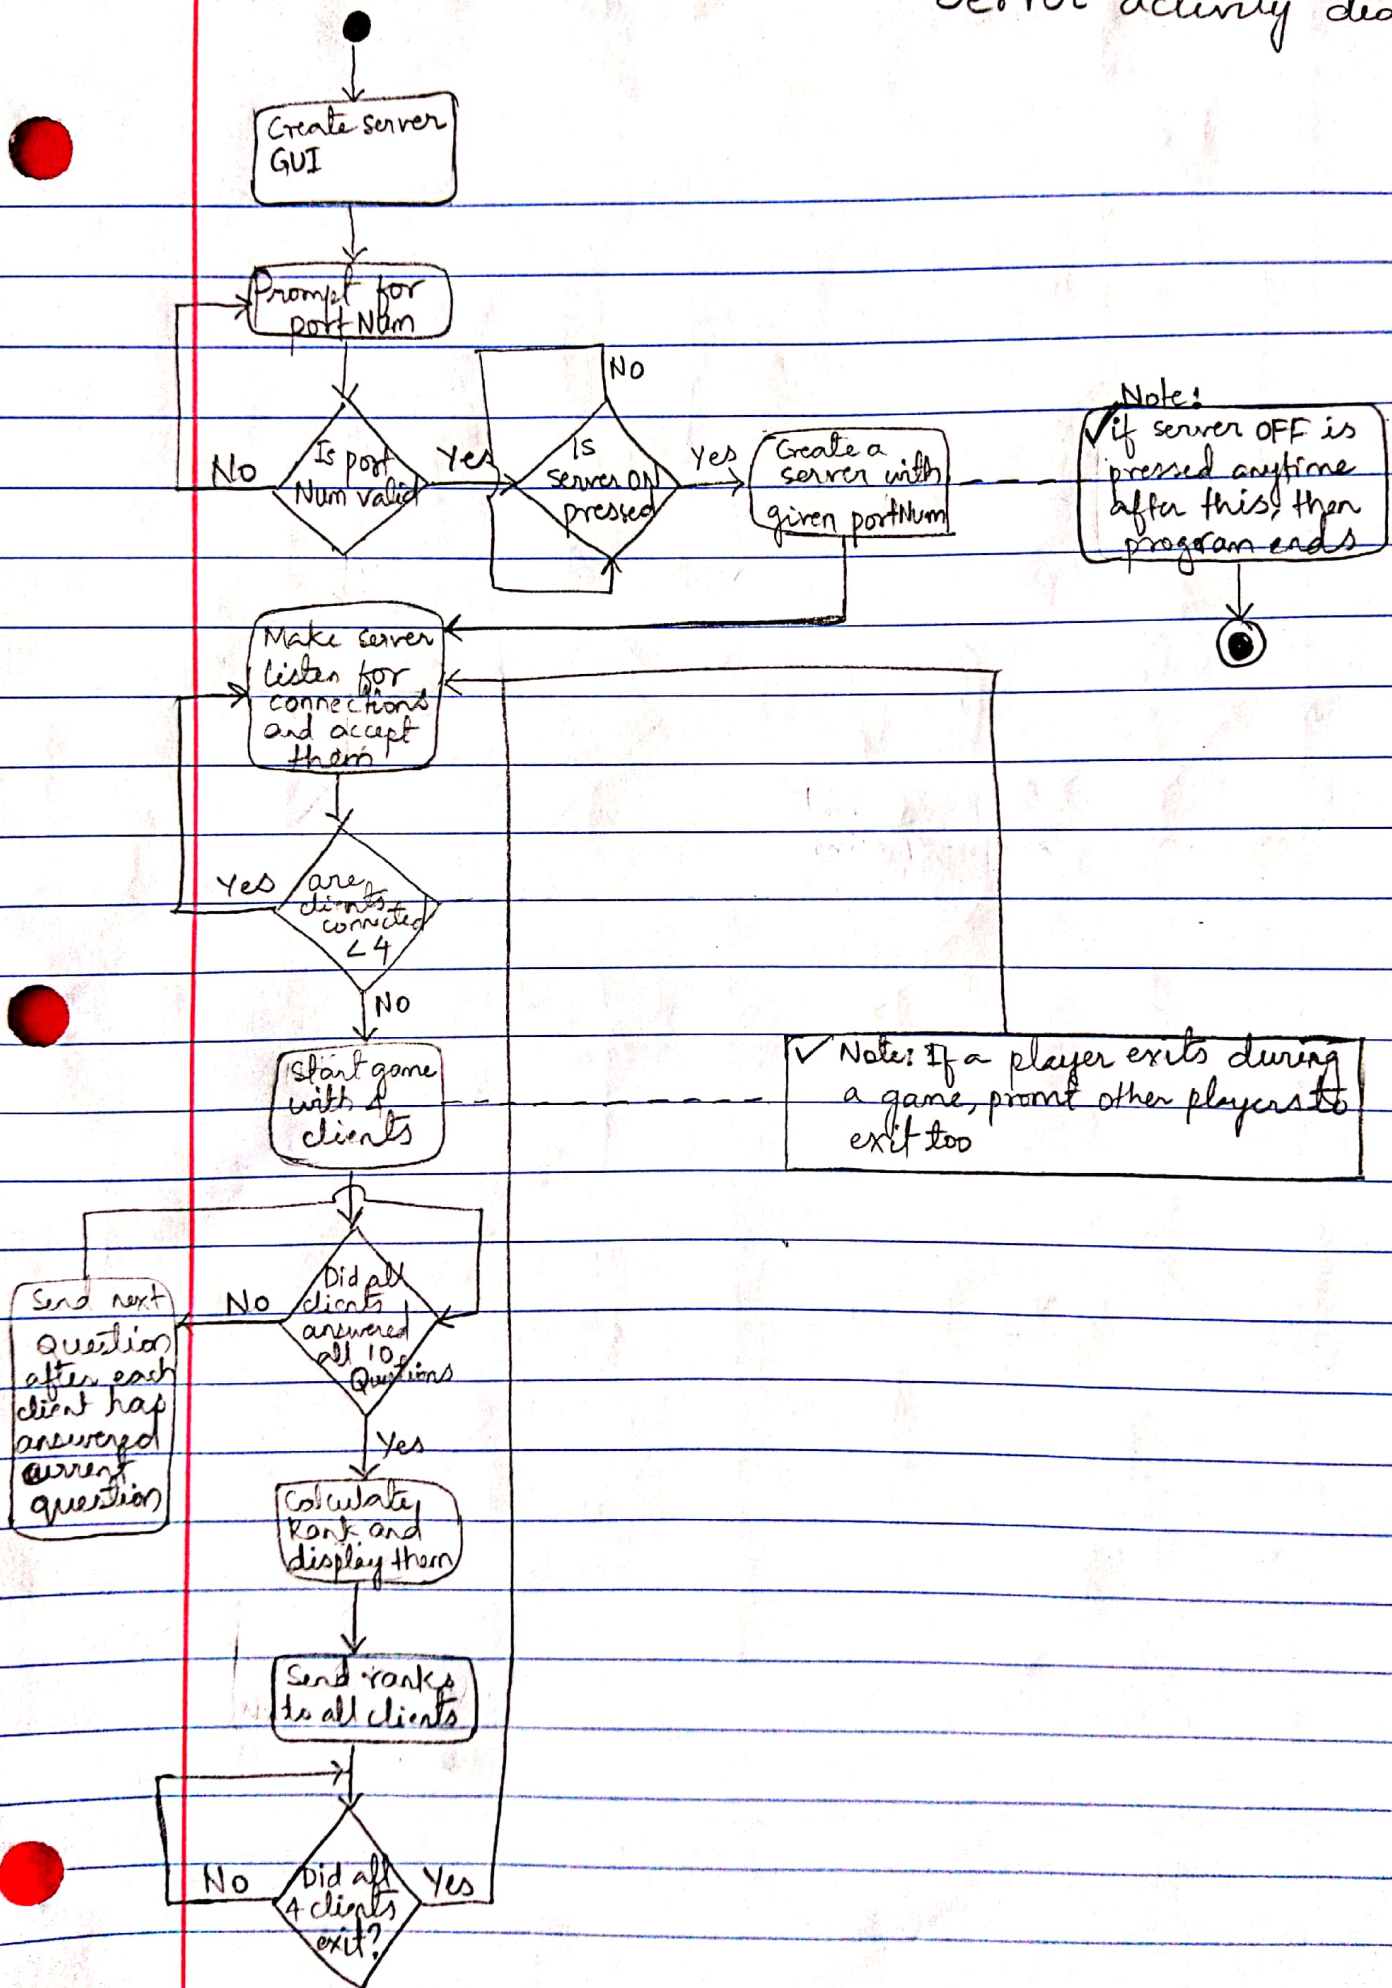 Server activity dia
Create server
GUI
Prompt for
portNum
No
Is port
Num valid
Yes
No
Is
server on
pressed
Yes
Create a
server with
given portNum
Note:
✓if server OFF is
pressed anytime
after this, then
program ends
Make server
listen for
connections
and accept
them
Yes
are
clients
connected
<4
No
Start game
with 4
clients
✓ Note: If a player exits during
a game, promt other players to
exit too
Did all
clients
answered
all 10
Questions
No
Send next
Question
after each
client has
answered
current
question
Yes
Calculate
Rank and
display them
Send ranks
to all clients
No
Did all
4 clients
exit?
Yes